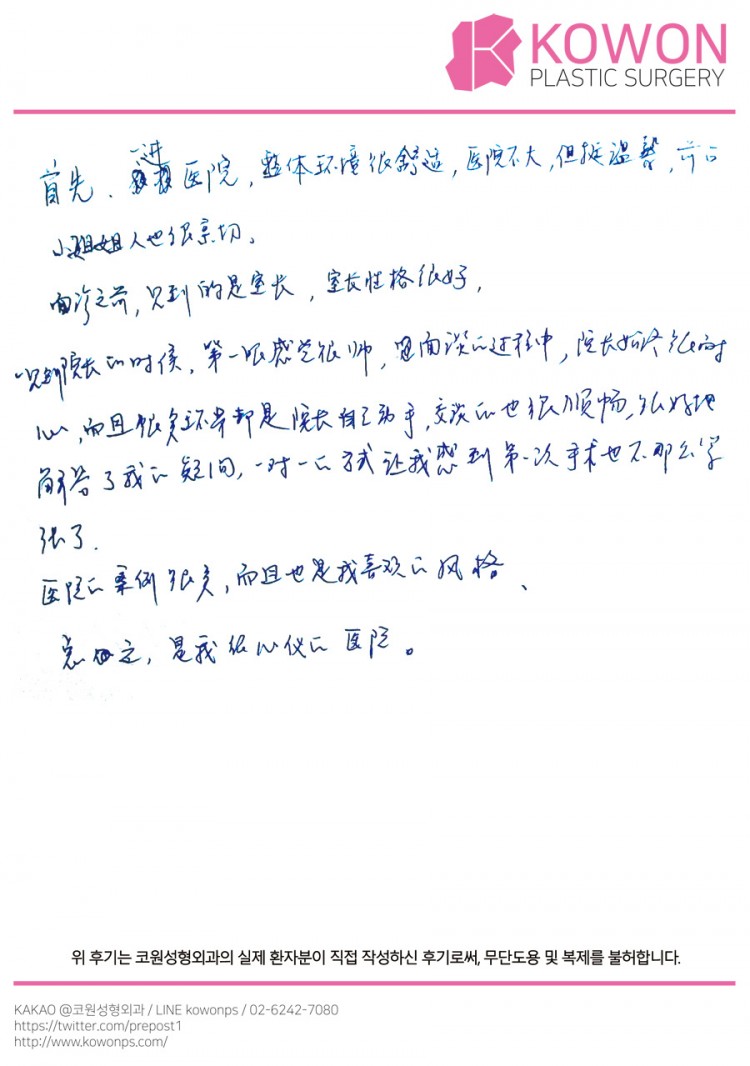 KOWON
PLASTIC SURGERY
首先、一进医院，整体环境很舒适，医院不大，但挺温馨，前台
小姐姐人也很亲切、
面诊之前，见到的是室长，室长性格很好，
见到院长的时候，第一眼感觉很帅，面谈的过程中，院长始终很耐
心，而且很多环节都是院长自己动手，交谈的也很顺畅，很好地
解答了我的疑问，一对一的方式让我感到第一次手术也不那么紧
张了.
医院的案例很多，而且也是我喜欢的风格、
总之，是我很心仪的医院。
위 후기는 코원성형외과의 실제 환자분이 직접 작성하신 후기로써, 무단도용 및 복제를 불허합니다.
KAKAO @코원성형외과 / LINE kowonps / 02-6242-7080
https://twitter.com/prepost1
http://www.kowonps.com/